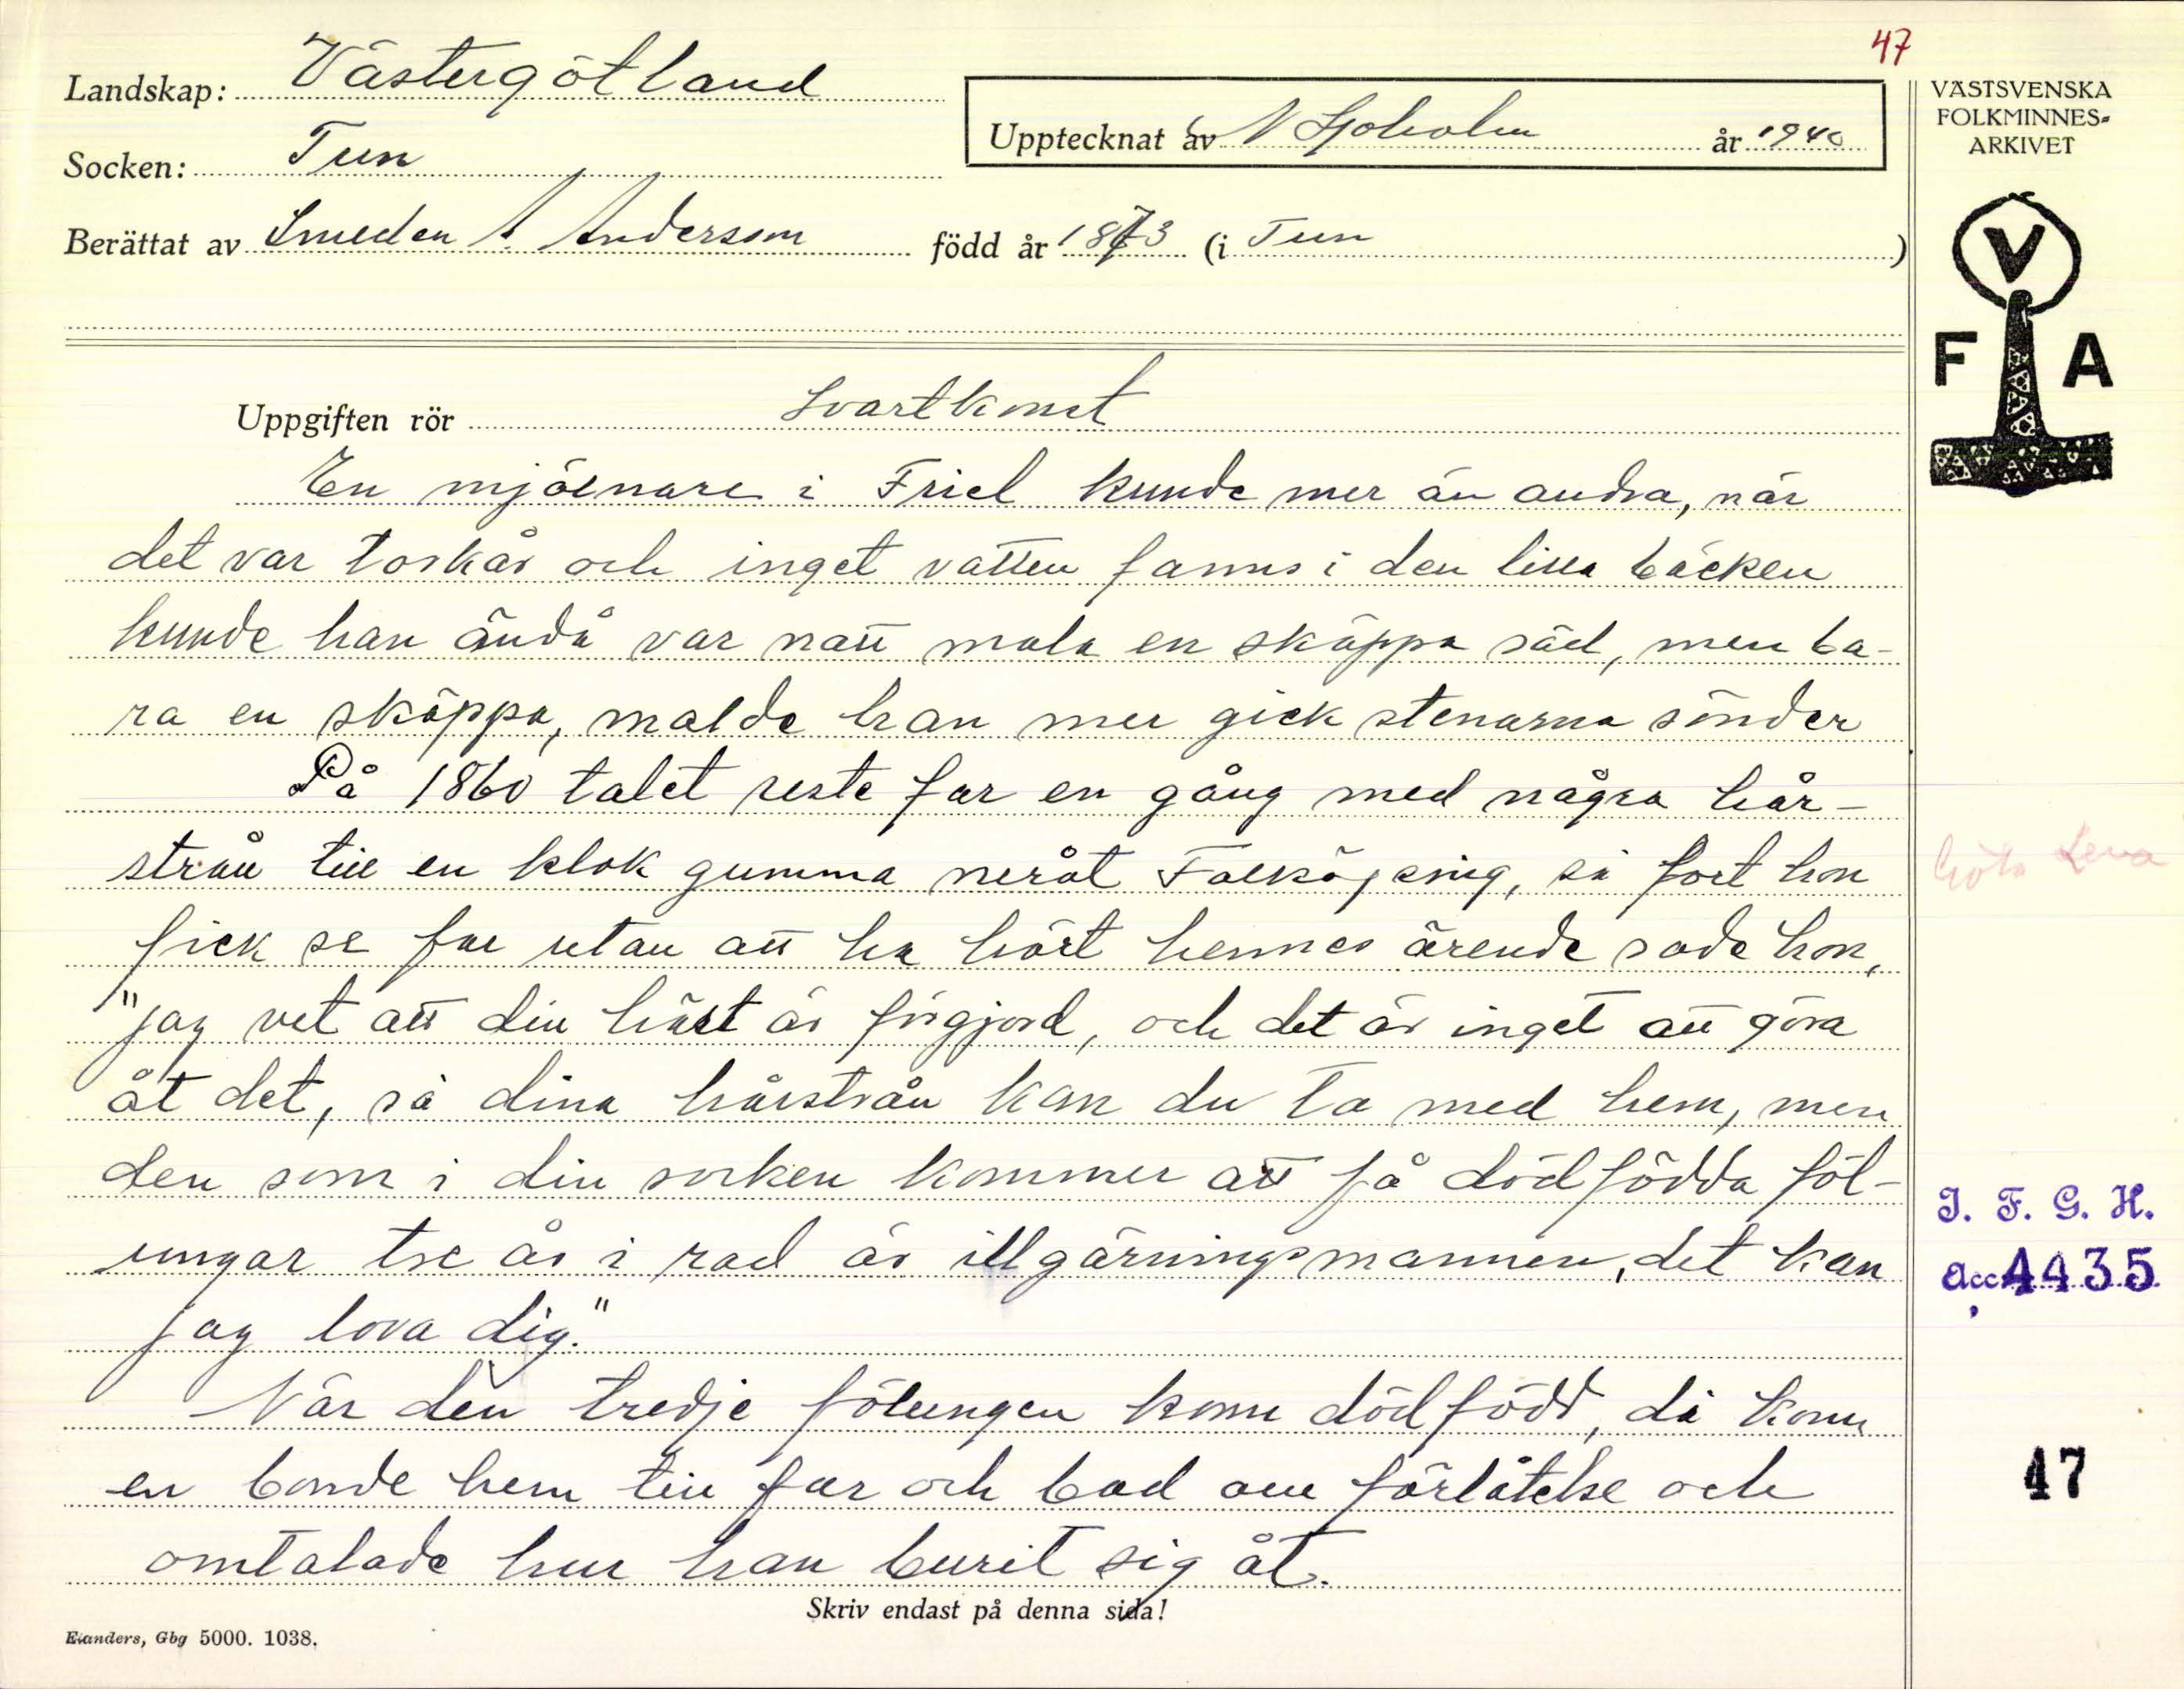 47
Landskap: Västergötland
Upptecknat av N Sjöholm år 1940
VÄSTSVENSKA
FOLKMINNES-
ARKIVET
Socken: Tun
Berättat av Smeden A. Andersson född år 1873 (i Tun )
V
F A
Uppgiften rör Svartkonst
En mjölnare i Friel kunde mer än andra, när
det var torkår och inget vatten fanns i den lilla bäcken
kunde han ändå var natt mala en skäppa säd, men ba-
ra en skäppa, malde han mer gick stenarna sönder
På 1860 talet reste far en gång med några hår-
strån till en klok gumma neråt Falköping, så fort hon
Lena
fick se far utan att ha hört hennes ärende sade hon,
"jag vet att din häst är förgjord, och det är inget att göra
åt det, så dina hårstrån kan du ta med hem, men
den som i din socken kommer att få dödfödda föl-
ungar tre år i rad är illgärningsmannen, det kan
jag lova dig."
I. F. G. H.
Acc 4435
När den tredje fölungen kom dödfödd, då kom
en bonde hem till far och bad om förlåtelse och
omtalade hur han burit sig åt.
47
Skriv endast på denna sida!
Elanders, Gbg 5000. 1038.